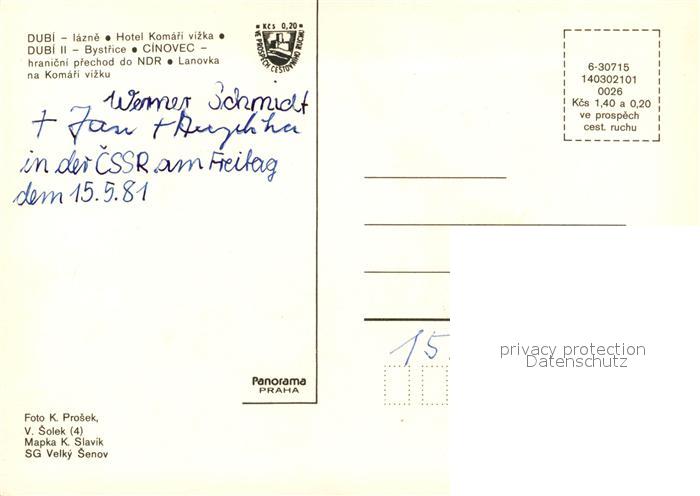 DUBÍ – lázně ● Hotel Komáří vížka ●
DUBÍ II – Bystřice ● CÍNOVEC –
hraniční přechod do NDR ● Lanovka
na Komáří vížku
Kčs 0,20
VE PROSPĚCH CESTOVNÍHO RUCHU
6-30715
140302101
0026
Kčs 1,40 a 0,20
ve prospěch
cest. ruchu
Werner Schmidt
+ Jan +
in der ČSSR am Freitag
dem 15.5.81
15.
privacy protection
Datenschutz
Panorama
PRAHA
Foto K. Prošek,
V. Šolek (4)
Mapka K. Slavík
SG Velký Šenov